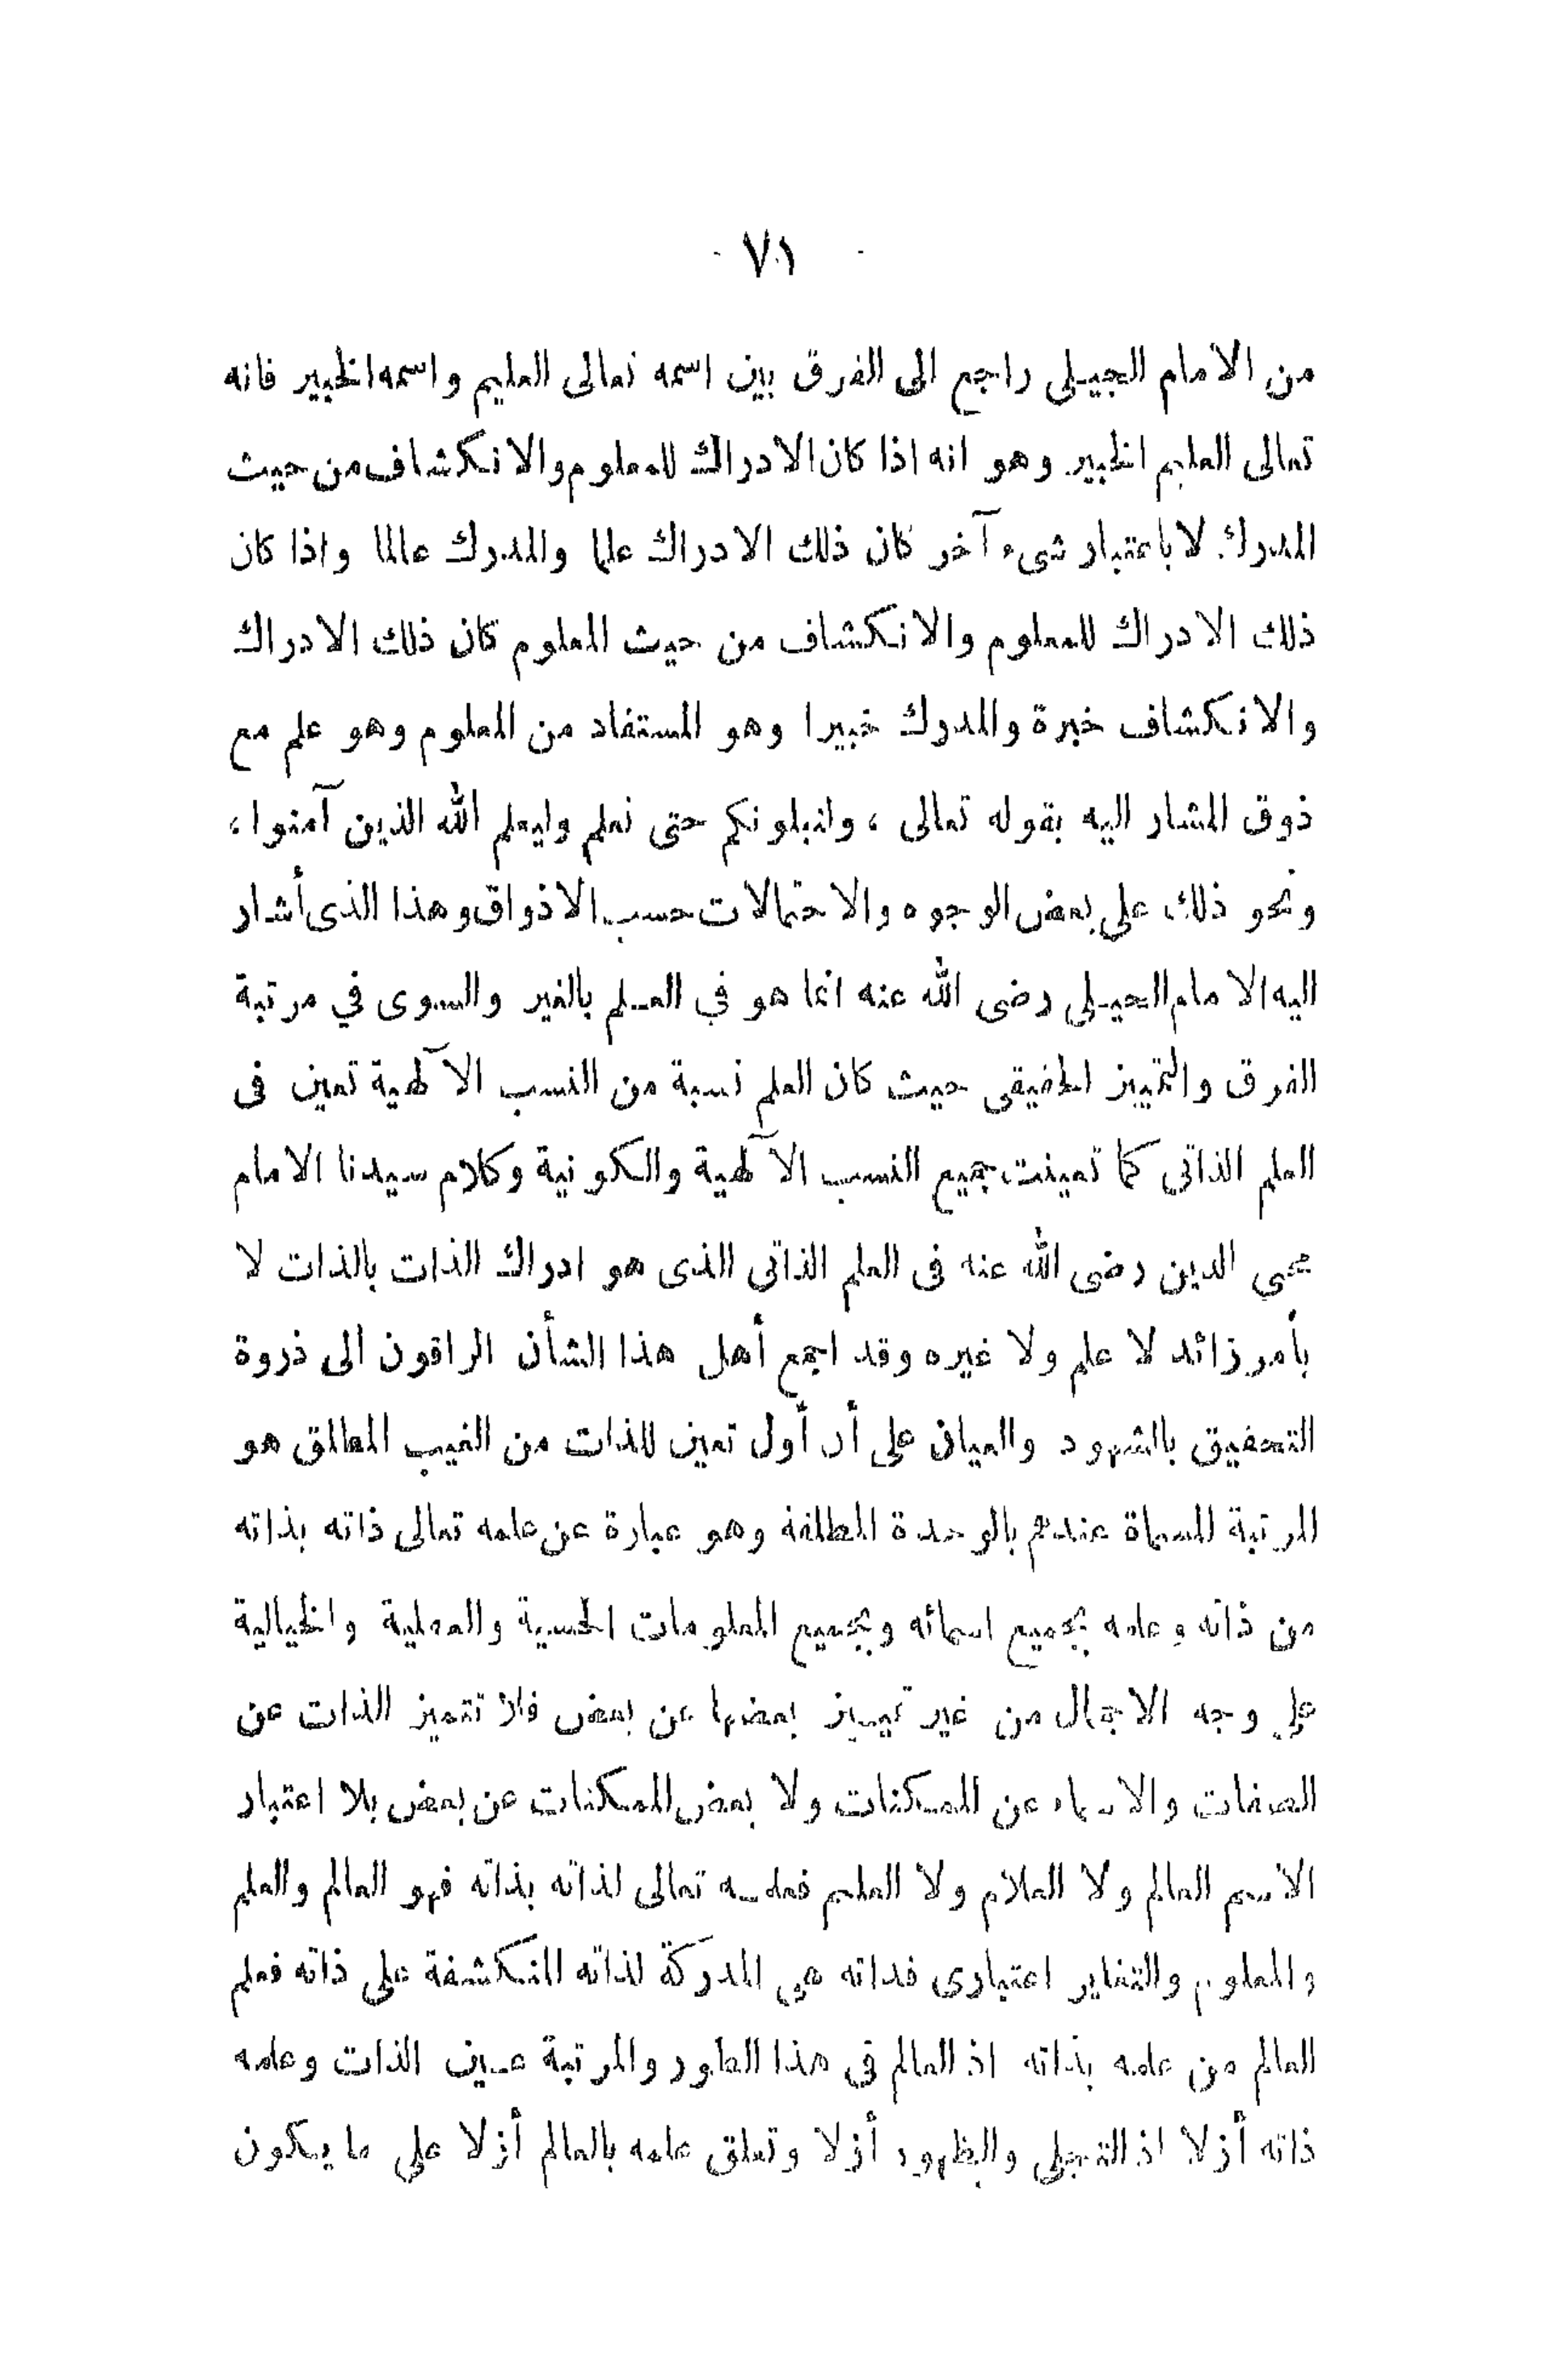 ٧١
من الامام الجيلى راجع الى الفرق بين اسمه تعالى العليم واسمه الخبير فانه
تعالى العليم الخبير وهو انه اذا كان الادراك للمعلوم والانكشاف من حيث
المدرك لا باعتبار شىء آخر كان ذلك الادراك علما والمدرك عالما واذا كان
ذلك الادراك للمعلوم والانكشاف من حيث المعلوم كان ذلك الادراك
والانكشاف خبرة والمدرك خبيرا وهو المستفاد من المعلوم وهو علم مع
ذوق المشار اليه بقوله تعالى ، ولنبلونكم حتى نعلم وليعلم الله الذين آمنوا ،
ونحو ذلك على بعض الوجوه والاحتمالات حسب الاذواق وهذا الذى أشار
اليه الامام الجيلى رضى الله عنه انما هو في العلم بالغير والسوى في مرتبة
الفرق والتمييز الحقيقى حيث كان العلم نسبة من النسب الآلهية تعين فى
العلم الذاتى كما تعينت جميع النسب الآلهية والكونية وكلام سيدنا الامام
محيى الدين رضى الله عنه فى العلم الذاتى الذى هو ادراك الذات بالذات لا
بأمر زائد لا علم ولا غيره وقد اجمع أهل هذا الشأن الراقون الى ذروة
التحقيق بالشهود والعيان على أن أول تعين للذات من الغيب المطلق هو
المرتبة المسماة عندهم بالوحدة المطلقة وهو عبارة عن علمه تعالى ذاته بذاته
من ذاته وعلمه بجميع اسمائه وبجميع المعلومات الحسية والعقلية والخيالية
على وجه الاجمال من غير تمييز بعضها عن بعض فلا تتميز الذات عن
الصفات والاسماء عن الممكنات ولا بعض الممكنات عن بعض بلا اعتبار
الاسم العالم ولا العلام ولا العليم فعلمه تعالى لذاته بذاته فهو العالم والعلم
والمعلوم والتغاير اعتبارى فذاته هى المدركة لذاته المنكشفة على ذاته فعلم
العالم من علمه بذاته اذ العالم فى هذا الطور والمرتبة عين الذات وعلمه
ذاته أزلا اذ التجلى والظهور أزلا وتعلق علمه بالعالم أزلا على ما يكون